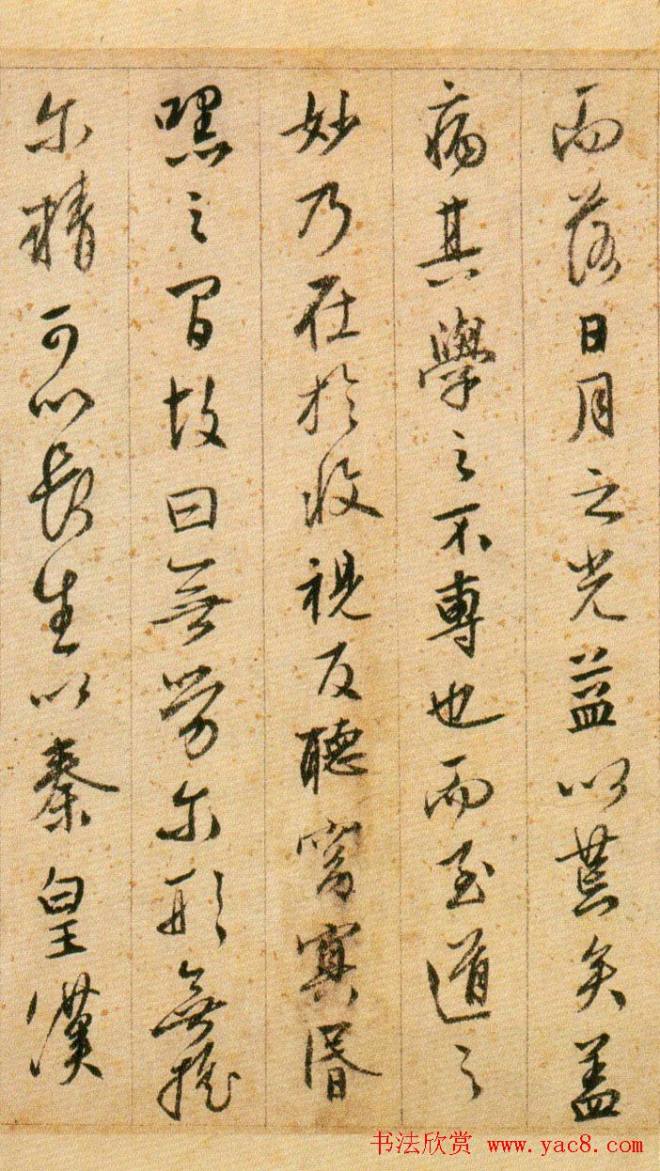 而落日月之光益以荒矣盖
病其學之不專也而至道之
妙乃在於收視反聽窈冥昏
嘿之間故曰無勞尔形無摇
尔精可以長生以秦皇漢
书法欣赏 www.yac8.com